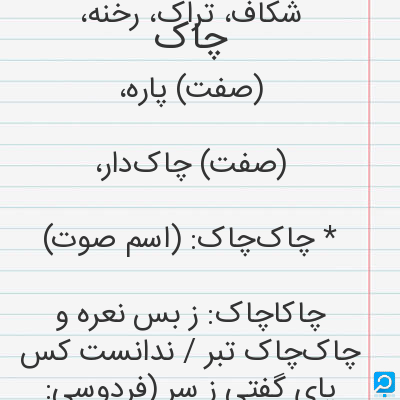 شکاف، تراک، رخنه،
چاک
(صفت) پاره،
(صفت) چاک‌دار،
* چاک‌چاک: (اسم صوت)
چاکاچاک: ز بس نعره و
چاک‌چاک تبر / ندانست کس
پای گفتی ز سر (فردوسی: